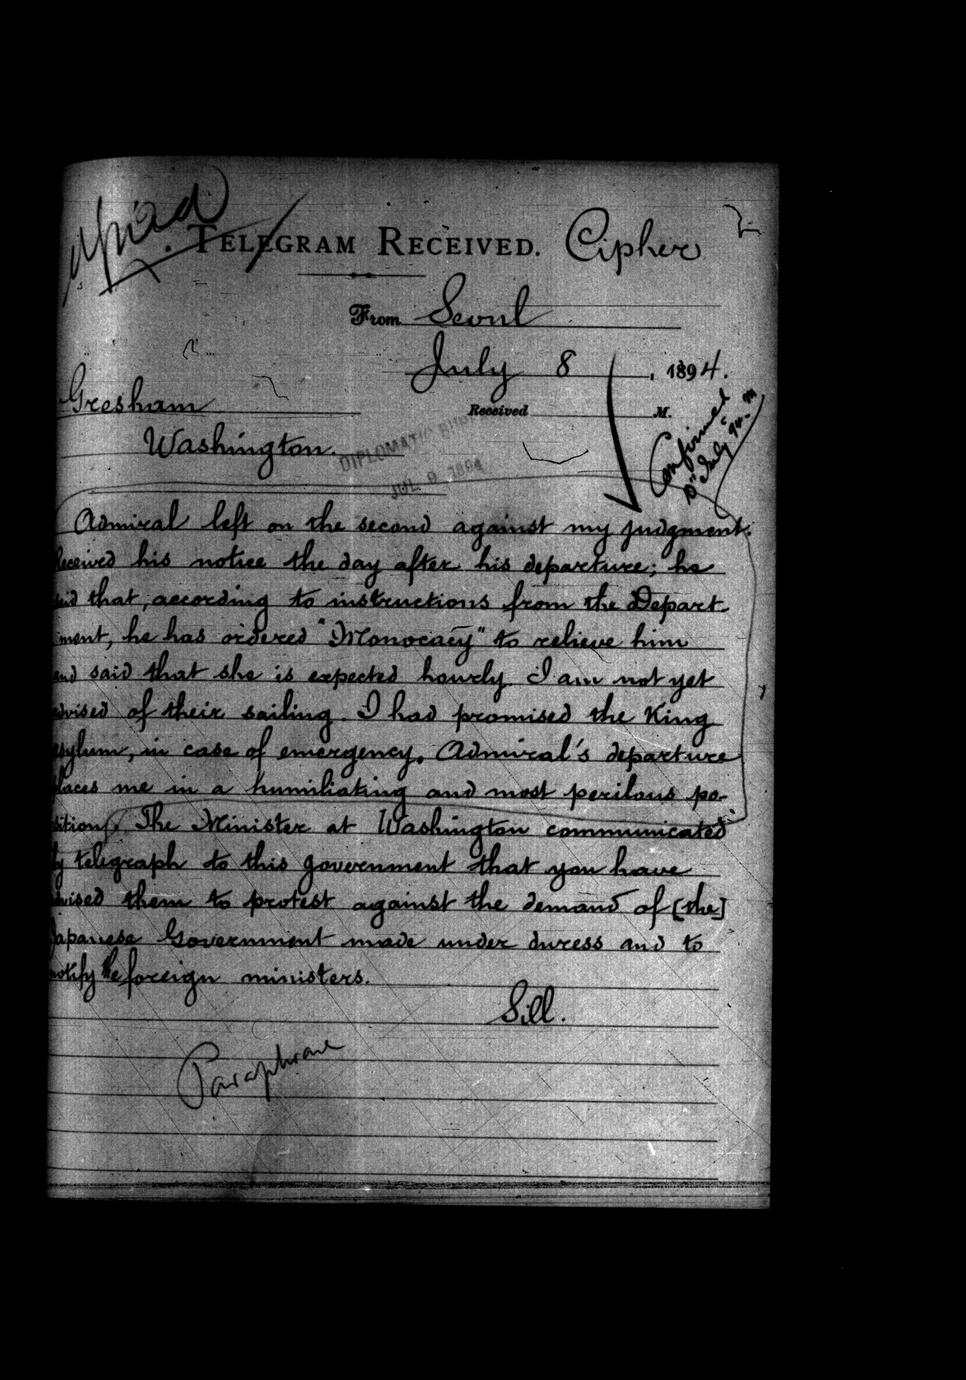 Copied
TELEGRAM RECEIVED. Cipher
From Seoul
July 8, 1894.
Gresham
Received M.
Washington.
Confirmed
10" July '94. M
DIPLOMATIC BUREAU
JUL 9 1894
Admiral left on the second against my judgment.
Received his notice the day after his departure; he
said that, according to instructions from the Depart-
ment, he has ordered "Monocacy" to relieve him
and said that she is expected hourly. I am not yet
advised of their sailing. I had promised the King
asylum, in case of emergency. Admiral's departure
places me in a humiliating and most perilous po-
sition. The Minister at Washington communicated
by telegraph to this government that you have
advised them to protest against the demand of [the]
Japanese Government made under duress and to
notify the foreign ministers.
Sill.
Paraphrase